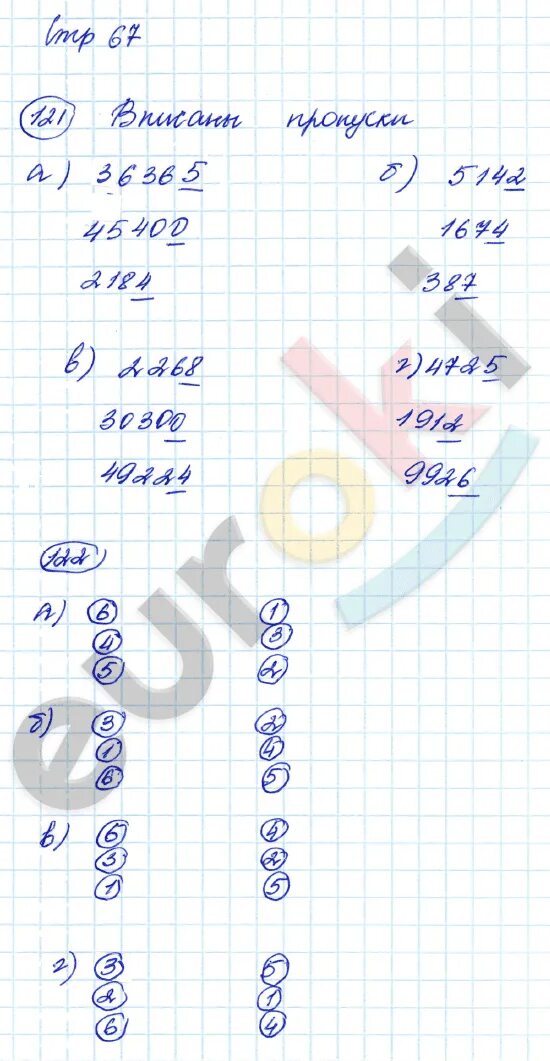 Стр 67
121 Вписаны пропуски
а) 36365 б) 5142
45400 1674
2184 387
в) 2268 г) 4725
30300 1912
49224 9926
122
а) 6 1
4 3
5 2
б) 3 2
1 4
6 5
в) 6 4
3 2
1 5
г) 3 5
2 1
6 4
euroki